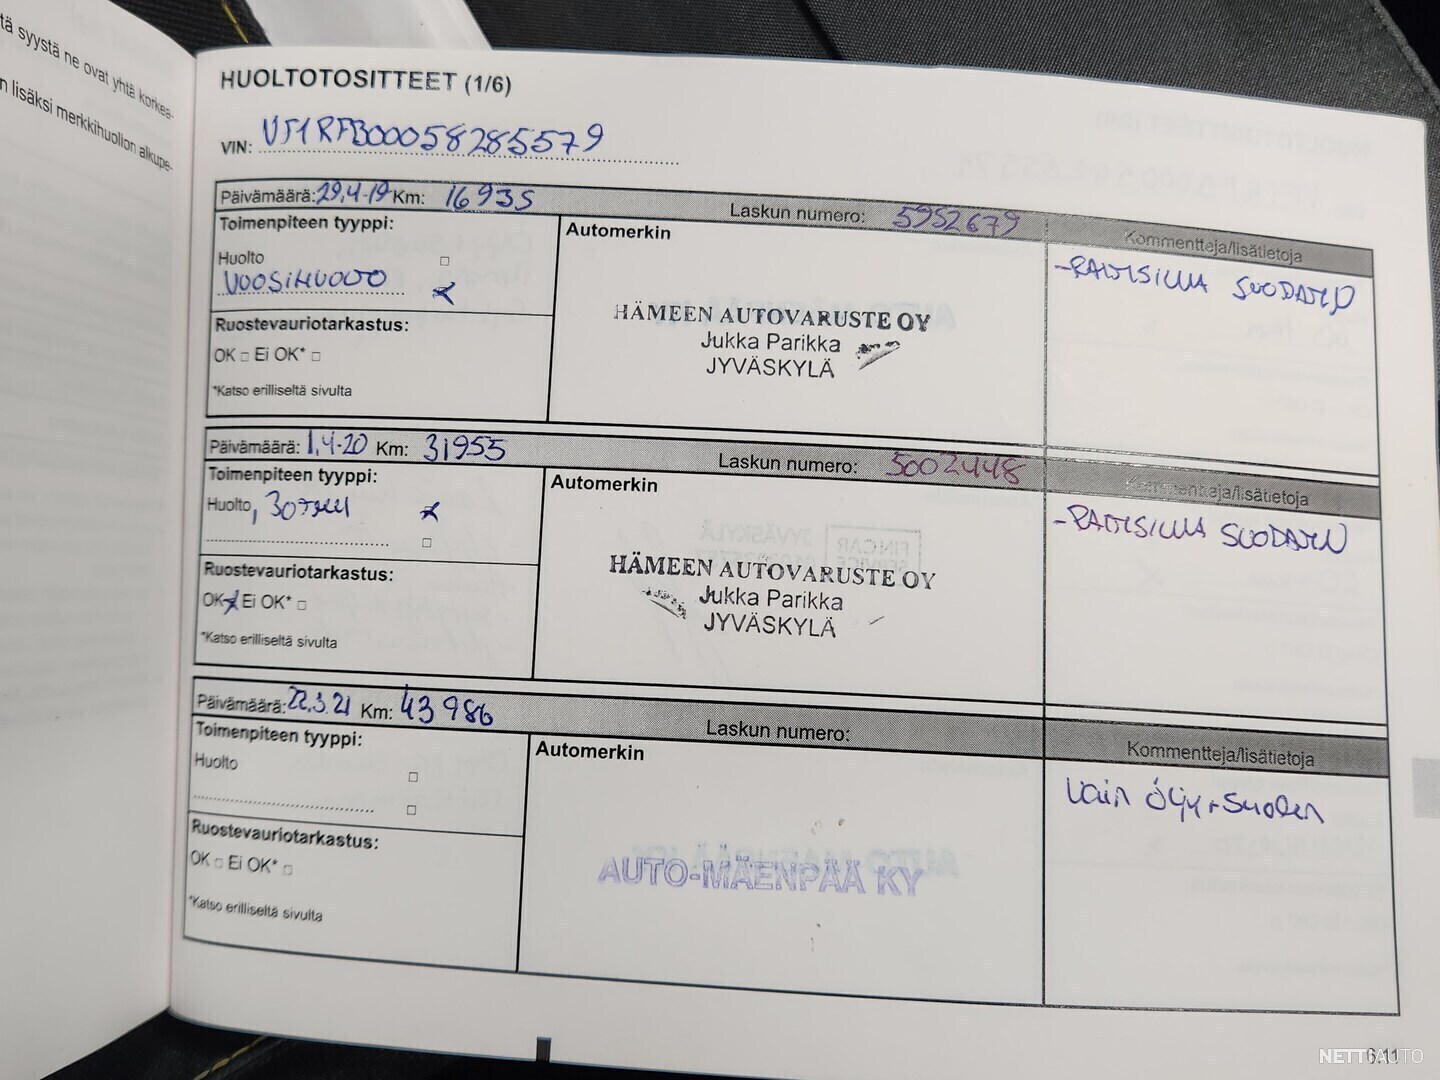 tä syystä ne ovat yhtä korkea-
n lisäksi merkkihuollon alkupe-
HUOLTOTOSITTEET (1/6)
VIN: VF1RFB00058285579
Päivämäärä: 29.4-19 Km: 16935 Laskun numero: 5952679 Kommentteja/lisätietoja
Toimenpiteen tyyppi:
Huolto
VUOSIHUOLTO
Ruostevauriotarkastus:
OK Ei OK*
*Katso erilliseltä sivulta
Automerkin
HÄMEEN AUTOVARUSTE OY
Jukka Parikka
JYVÄSKYLÄ
-RAITISILMA SUODATIN
Päivämäärä: 1.4-20 Km: 31955 Laskun numero: 5002448 Kommentteja/lisätietoja
Toimenpiteen tyyppi:
Huolto, 30TKM
Ruostevauriotarkastus:
OK Ei OK*
*Katso erilliseltä sivulta
Automerkin
HÄMEEN AUTOVARUSTE OY
Jukka Parikka
JYVÄSKYLÄ
-RAITISILMA SUODATIN
Päivämäärä: 22.3.21 Km: 43986 Laskun numero: Kommentteja/lisätietoja
Toimenpiteen tyyppi:
Huolto
Ruostevauriotarkastus:
OK Ei OK*
*Katso erilliseltä sivulta
Automerkin
AUTO-MÄENPÄÄ KY
Vain öljy+suodin
6.11
NETTIAUTO